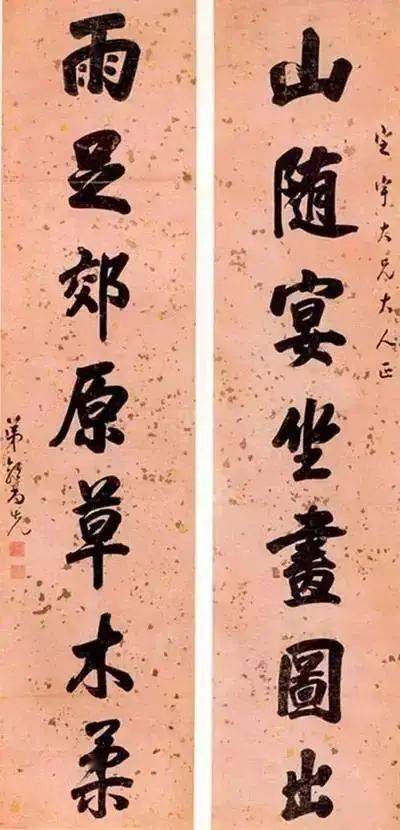 宇大兄大人正
山随宴坐畫圖出
雨足郊原草木柔
弟郭尚先